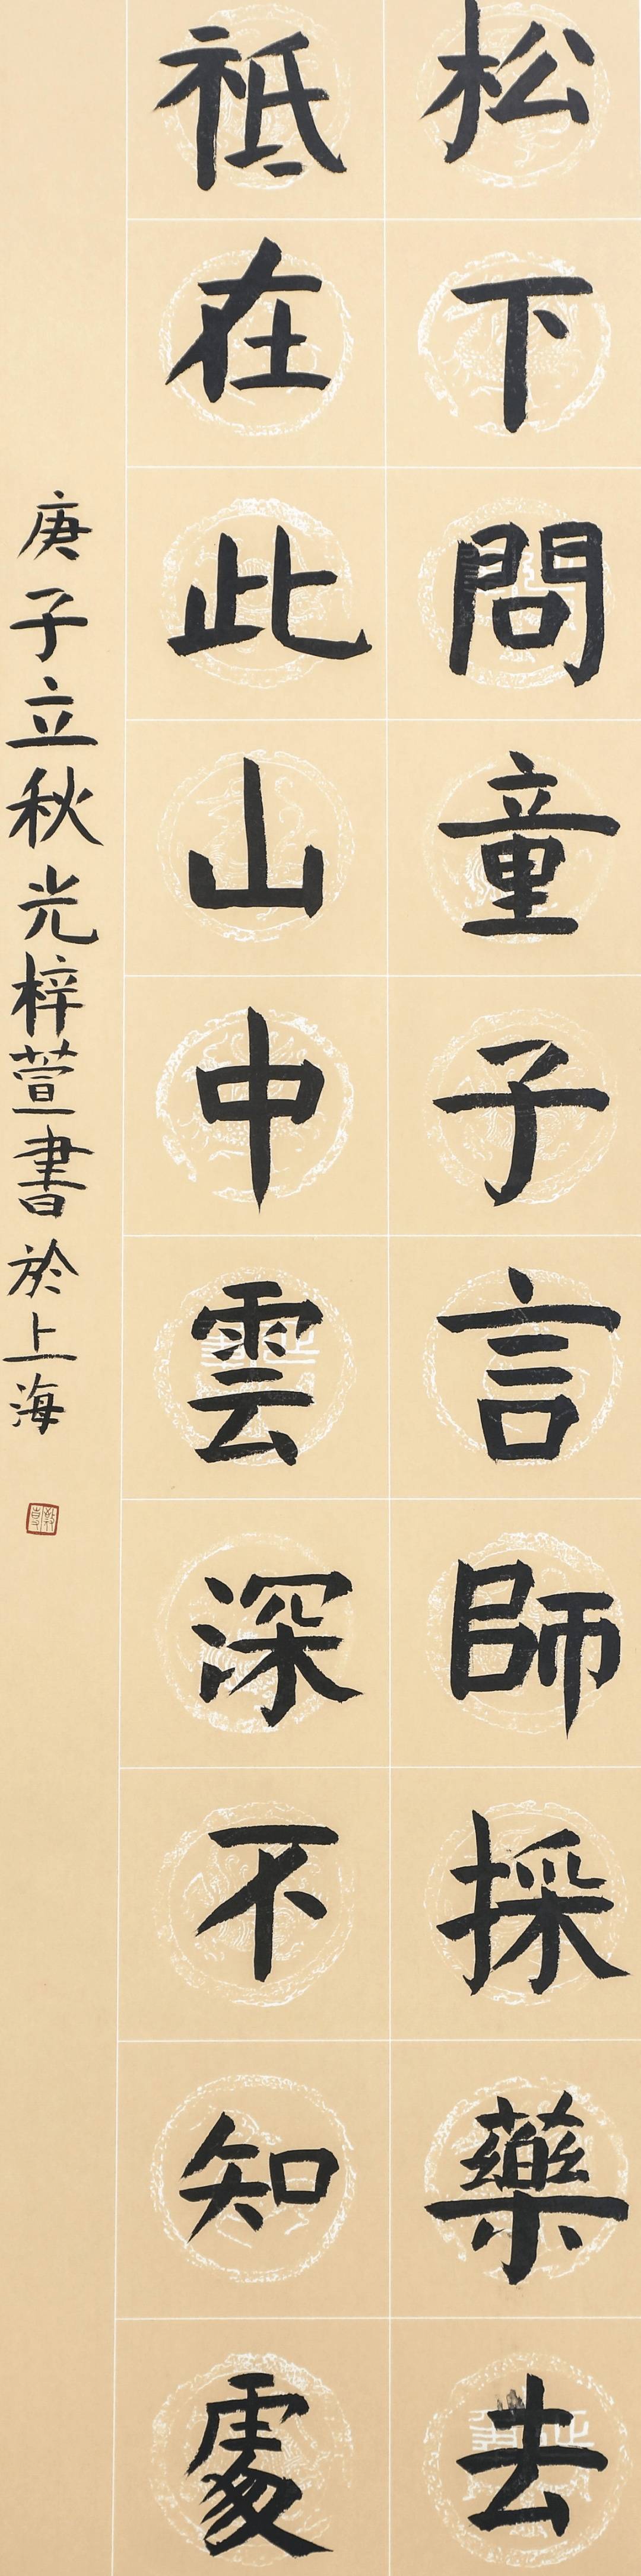 松下問童子言師採藥去
祗在此山中雲深不知處
庚子立秋光梓萱書於上海